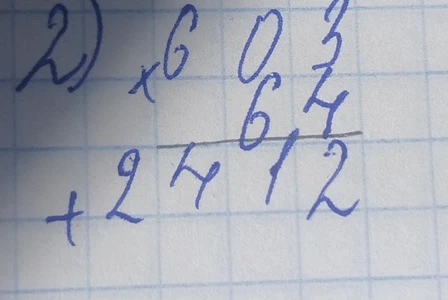 2) × 603
64
+ 2412